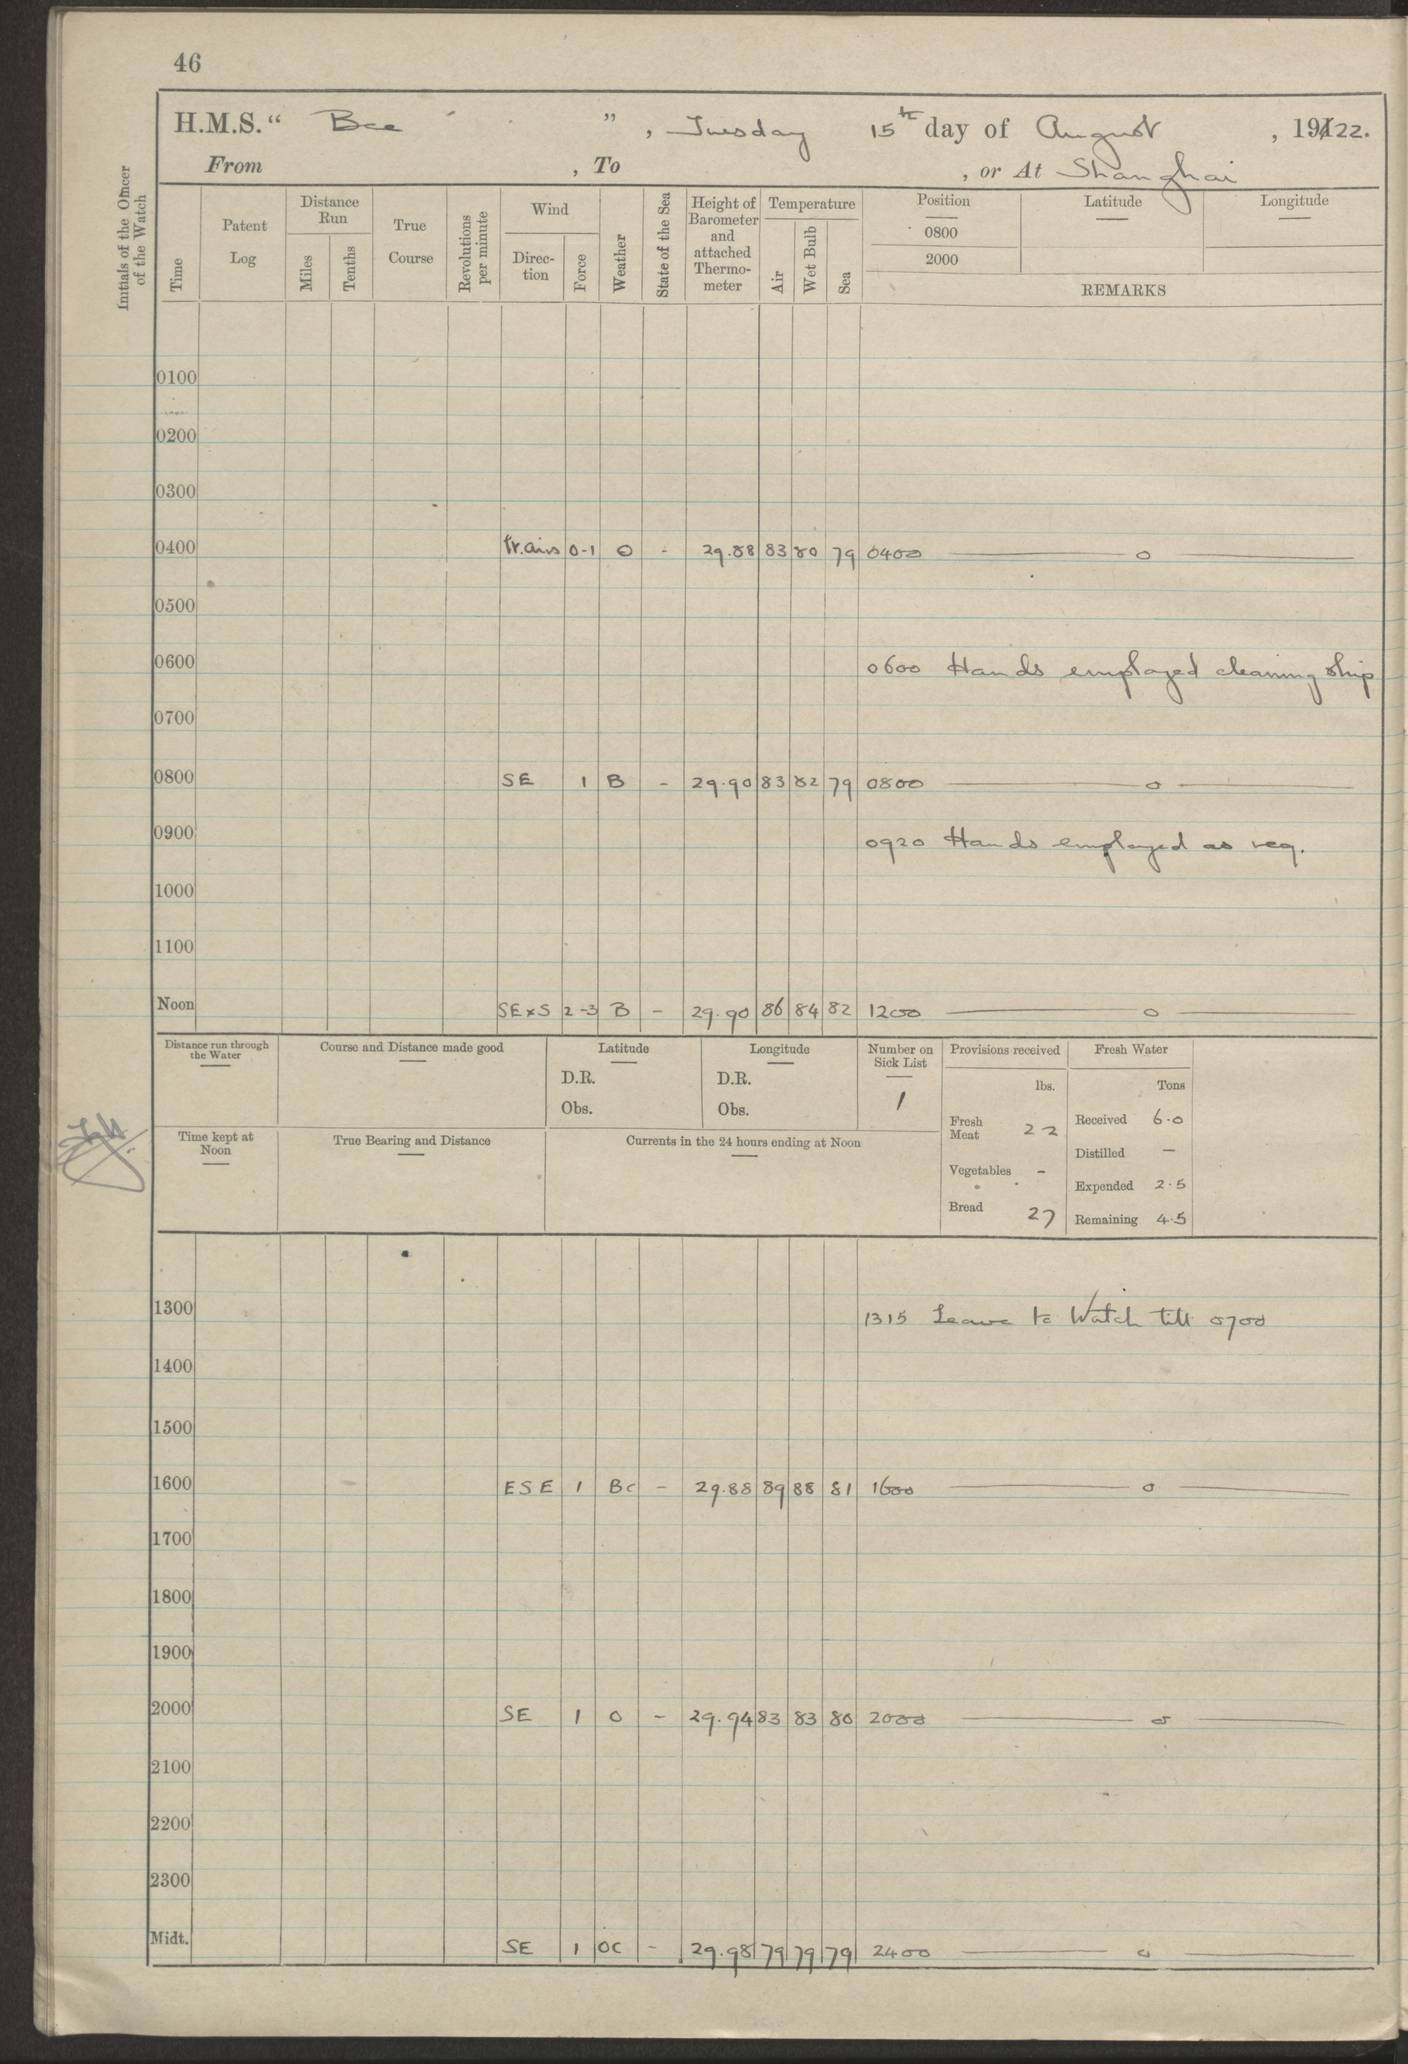 46
H.M.S. “ Bee ” , Tuesday 15th day of August , 1922.
From , To , or At Shanghai
Initials of the Officer of the Watch
Time
Patent Log
Distance Run
Miles
Tenths
True Course
Revolutions per minute
Wind
Direction
Force
Weather
State of the Sea
Height of Barometer and attached Thermometer
Temperature
Air
Wet Bulb
Sea
Position
0800
2000
Latitude
Longitude
REMARKS
0100
0200
0300
0400 0-1 O - 29.88 83 80 79 0400 —— o ——
0500
0600 0600 Hands employed cleaning ship
0700
0800 SE 1 B - 29.90 83 82 79 0800 —— o ——
0900 0920 Hands employed as req.
1000
1100
Noon SExS 2-3 B - 29.90 86 84 82 1200 —— o ——
Distance run through the Water
Course and Distance made good
Latitude
D.R.
Obs.
Longitude
D.R.
Obs.
Number on Sick List
1
Provisions received
lbs.
Fresh Meat 22
Vegetables -
Bread 27
Fresh Water
Tons
Received 6.0
Distilled -
Expended 2.5
Remaining 4.5
Time kept at Noon
True Bearing and Distance
Currents in the 24 hours ending at Noon
1300 1315 Leave to Watch till 0700
1400
1500
1600 ESE 1 Bc - 29.88 89 88 81 1600 —— o ——
1700
1800
1900
2000 SE 1 O - 29.94 83 83 80 2000 —— o ——
2100
2200
2300
Midt. SE 1 OC - 29.98 79 79 79 2400 —— o ——